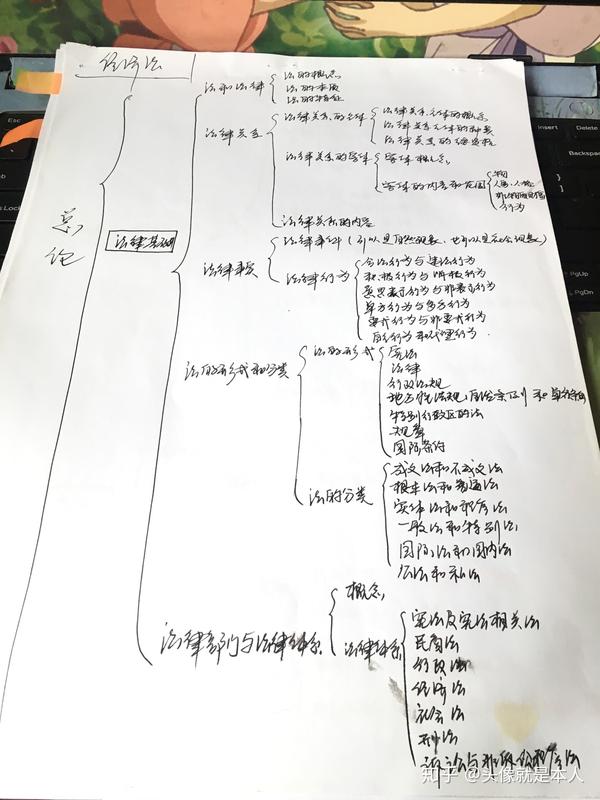 经济法
总论
法律基础
法和法律
法的概念
法的本质
法的特征
法律关系
法律关系的主体
法律关系主体的概念
法律关系主体的种类
法律关系的客体
客体概念
客体的内容和范围
物
人身、人格
行为
法律关系的内容
法律事实
法律事件(可以是自然现象,也可以是社会现象)
法律行为
合法行为与违法行为
积极行为与消极行为
意思表示行为与非表示行为
单方行为与多方行为
要式行为与非要式行为
自主行为和代理行为
法的形式和分类
法的形式
宪法
法律
行政法规
地方性法规,自治条例和单行条例
特别行政区的法
规章
国际条约
法的分类
成文法和不成文法
根本法和普通法
实体法和程序法
一般法和特别法
国际法和国内法
公法和私法
法律部门与法律体系
概念
法律体系
宪法及宪法相关法
民商法
行政法
经济法
社会法
刑法
诉讼与非诉讼程序法
Insert
Delete
Backspace
PgUp
PgDn
End
知乎 @头像就是本人